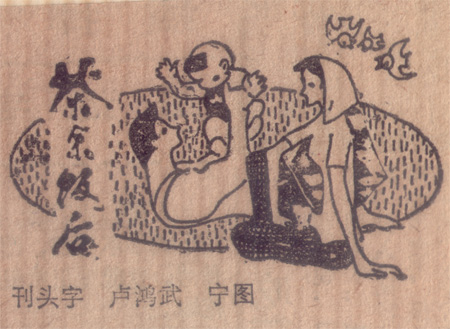 茶余饭后
刊头字 卢鸿武 宁图